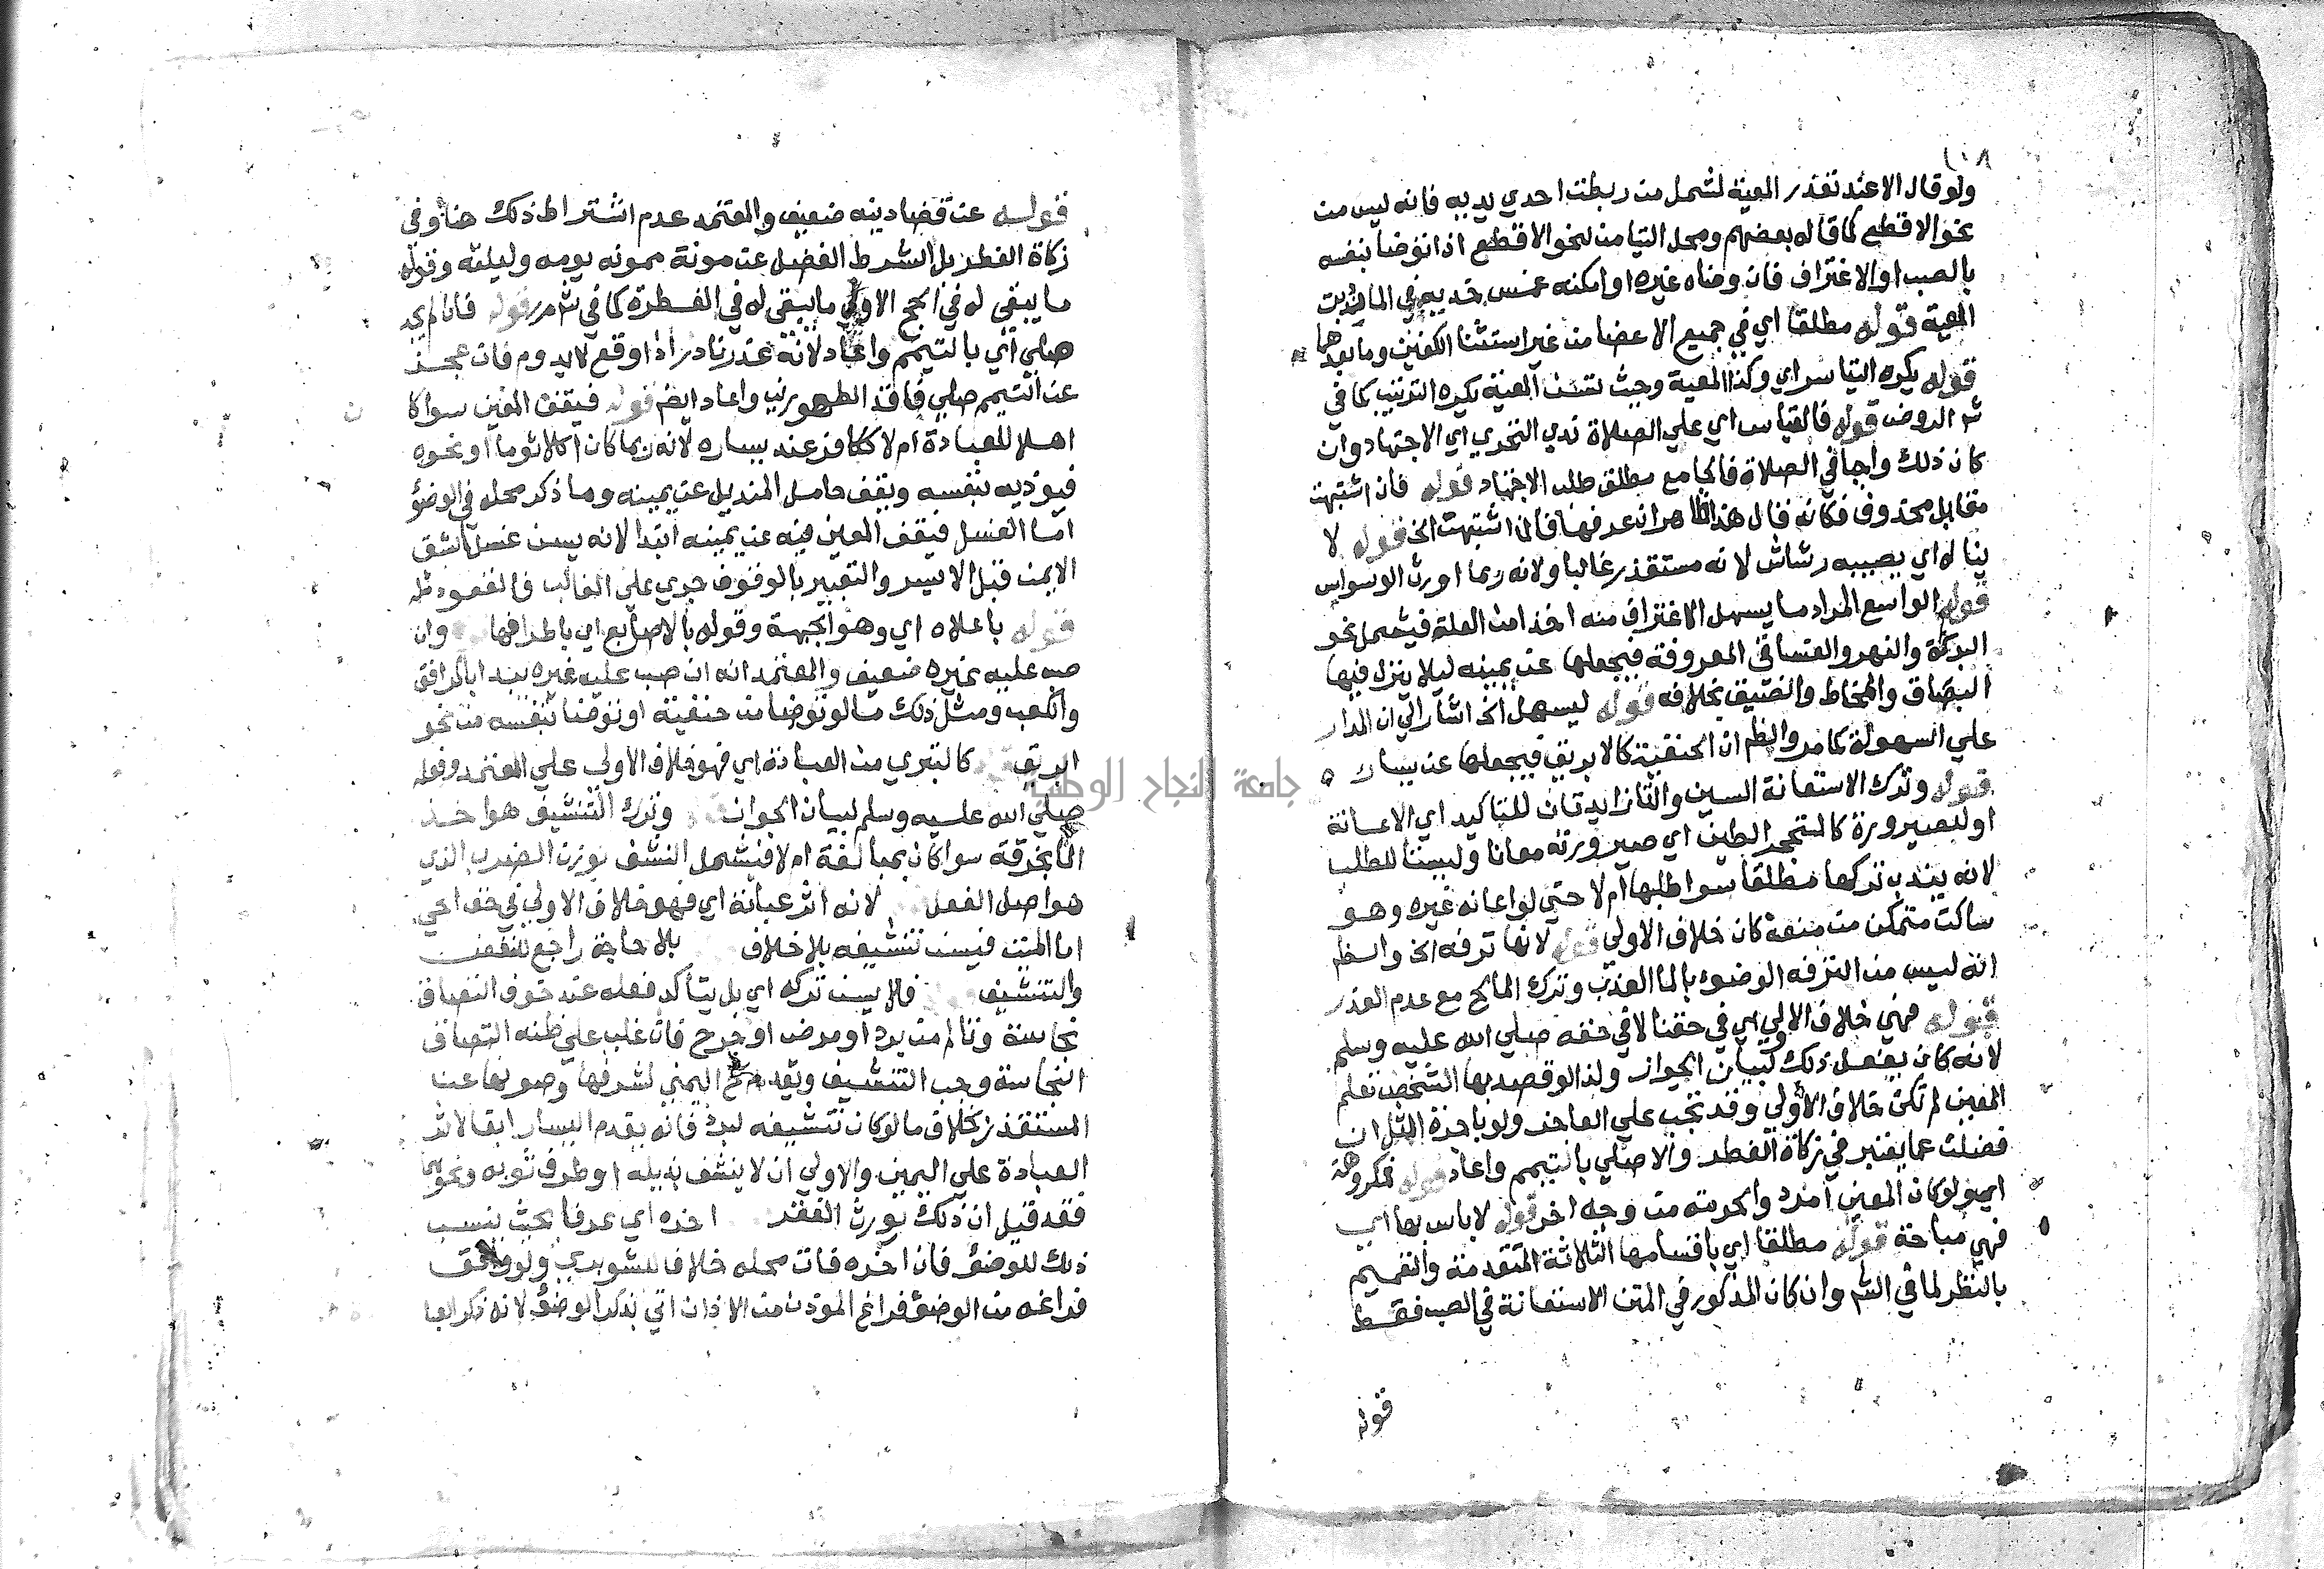 ١٠٨
ولو قال الا عند تعذر المعية لشمل من ربطت احدي يديه فانه ليس من
نحو الاقطع كما قاله بعضهم ومحل التيامن لنحو الاقطع اذا توضأ بنفسه
بالصب او الاغتراف فان وضاه غيره او امكنه غمس خديه في الما ندبت
المعية قوله مطلقا اي في جميع الاعضا من غير استثنا الكفين وما بعدهما
قوله يكره التياسر اي وكذا المعية وحيث تسن المعية يكره الترتيب كما في
شم الروض قوله فالقياس اي علي الصلاة ندي التحري اي الاجتهاد وان
كان ذلك واجبا في الصلاة فالجامع مطلق طلب الاجتهاد قوله فان اشتبهت
مقابل محذوف فكانه قال هذا ان عرفها فان اشتبهت الخ قوله لا
يناله اي يصيبه رشاش لانه مستقذر غالبا ولانه ربما اورث الوسواس
قوله الواسع المراد ما يسهل الاغتراف منه اخذا من العلة فيشمل نحو
البركة والنهر والفساقي المعروفة فيجعلها عن يمينه ليلا ينزل فيها
البصاق والمخاط والضيق بخلافه قوله ليسهل الخ اشار الي ان المدار
علي السهولة كما مر والظم ان الحنفية كالابريق فيجعلها عن يساره
قوله وترك الاستعانة السين والتا زايدتان للتاكيد اي الاعانة
او للصيرورة كاستحجر الطين اي صيرورته معانا وليستا للطلب
لانه يندب تركها مطلقا سوا طلبها ام لا حتي لو اعانه غيره وهو
ساكت متمكن من منعه كان خلاف الاولي قوله لانها ترفه الخ والظم
انه ليس من الترفه الوضوء بالما العذب وترك المالح مع عدم العذر
قوله فهي خلاف الاولي اي في حقنا لا في حقه صلي الله عليه وسلم
لانه كان يفعل ذلك لبيان الجواز ولذا لو قصد بها الشخص تعلم
المعين لم تكن خلاف الاولي وقد تجب علي العاجز ولو باجرة المثل ان
فضلت عما يعتبر في زكاة الفطر والا صلي بالتيمم واعاد قوله فمكروهة
اي ولو كان المعين امرد والحرمة من وجه اخر قوله لا باس بها اي
فهي مباحة قوله مطلقا اي باقسامها الثلاثة المتقدمة والتعميم
بالنظر لما في الشم وان كان المذكور في المتن الاستعانة في الصب فقط
قوله
قوله عن قضا دينه ضعيف والمعتمد عدم اشتراط ذلك هنا وفي
زكاة الفطر بل الشرط الفضل عن مونة ممونه يومه وليلته وقوله
ما يبقي له في الحج الاولي ما يبقي له في الفطرة كما في شم مر قوله فان لم يجد
صلي اي بالتيمم واعاد لانه عذر نادر اذا وقع لا يدوم فان عجز
عن التيمم صلي فاقد الطهورين واعاد ايضم قوله فيقف المعين سوا كان
اهلا للعبادة ام لا ككافر عند يساره لانه ربما كان اكلا ثوما او نحوه
فيوذيه بنفسه ويقف حامل المنديل عن يمينه وما ذكر محله في الوضؤ
اما الغسل فيقف المعين فيه عن يمينه ابتدا لانه يسن غسل الشق
الايمن قبل الايسر والتعبير بالوقوف جري علي الغالب فالقعود مثله
قوله باعلاه اي وهو الجبهة وقوله بالاصابع اي باطرافها وان
صب عليه غيره ضعيف والمعتمد انه ان صب عليه غيره بدا بالمرافق
والكعب ومثل ذلك ما لو توضا من حنفية او توضا بنفسه من نحو
ابريق كالتبري من العبادة اي فهو خلاف الاولي علي المعتمد وفعله
صلي الله عليه وسلم لبيان الجواز وترك التنشيف هو اخذ
الما بخرقة سوا كان بمبالغة ام لا فيشمل النشف بوزن الضرب الذي
هو اصل الفعل لانه اثر عبادة اي فهو خلاف الاولي في حق الحي
اما الميت فيسن تنشيفه بلا خلاف بلا حاجة راجع للنفض
والتنشيف فلا يسن تركه اي بل يتاكد فعله عند خوف التصاق
نجاسة وتالم من برد او مرض او جرح فان غلب علي ظنه التصاق
النجاسة وجب التنشيف ويقدم اليمني لشرفها وصونها عن
المستقذر بخلاف ما لو كان تنشيفه لبرد فانه يقدم اليسار ابقا لاثر
العبادة علي اليمين والاولي ان لا ينشف بذيله او طرف ثوبه ونحوهما
فقد قيل ان ذلك يورث الفقر اخره اي عرفا بحيث ينسب
ذلك للوضؤ فان اخره فات محله خلافا للشوبري ولو وافق
فراغه من الوضؤ فراغ الموذن من الاذان اتي بذكر الوضؤ لانه ذكر العبا
جامعة النجاح الوطنية